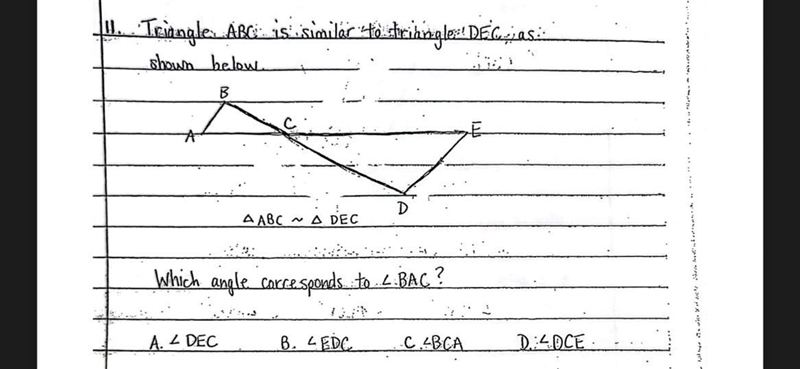 11. Triangle ABC is similar to trihngle DEC, as
shown below.
B
C
A
E
D
△ ABC ~ △ DEC
Which angle corresponds to ∠BAC?
A. ∠DEC B. ∠EDC C. ∠BCA D. ∠DCE